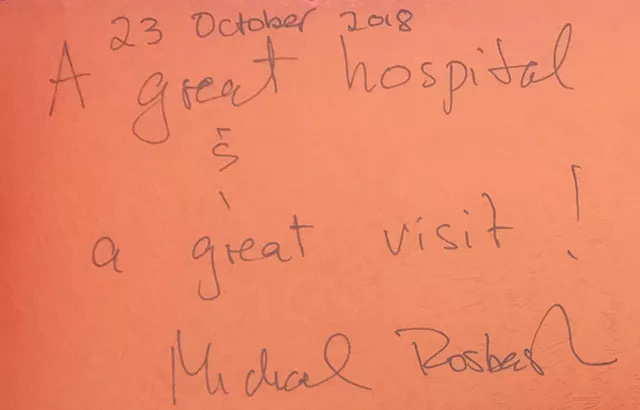 23 October 2018
A great hospital
&
a great visit!
Michael Rosbash